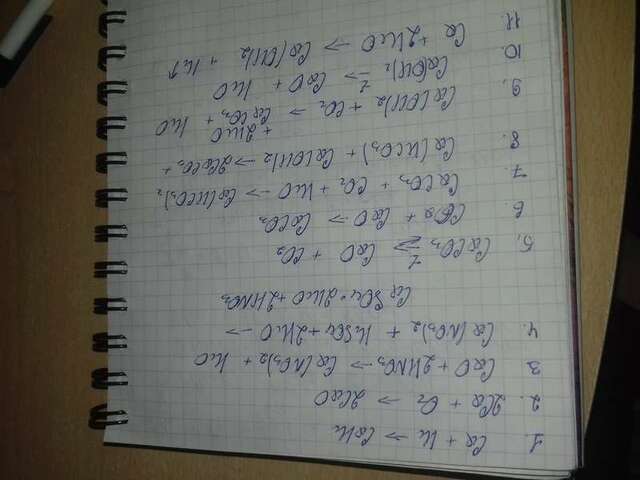 1. Ca + H₂ → CaH₂
2. 2Ca + O₂ → 2CaO
3 CaO + 2HNO₃ → Ca(NO₃)₂ + H₂O
4. Ca(NO₃)₂ + H₂SO₄ + 2H₂O →
CaSO₄ • 2H₂O + 2HNO₃
5. CaCO₃ t→ CaO + CO₂
6 CO₂ + CaO → CaCO₃
7. CaCO₃ + CO₂ + H₂O → Ca(HCO₃)₂
8. Ca(HCO₃) + Ca(OH)₂ → 2CaCO₃ +
+ 2H₂O
9. Ca(OH)₂ + CO₂ → CaCO₃ + H₂O
10. Ca(OH)₂ t→ CaO + H₂O
11. Ca + 2H₂O → Ca(OH)₂ + H₂↑